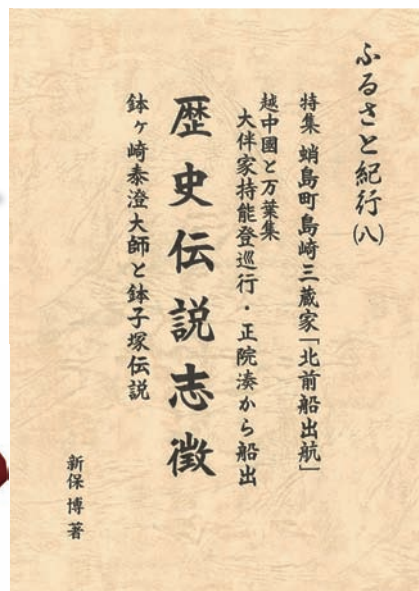 ふるさと紀行(八)
特集 蛸島町島崎三蔵家「北前船出航」
越中國と万葉集
大伴家持能登巡行・正院湊から船出
歴史伝説志徴
鉢ヶ崎泰澄大師と鉢子塚伝説
新保博著